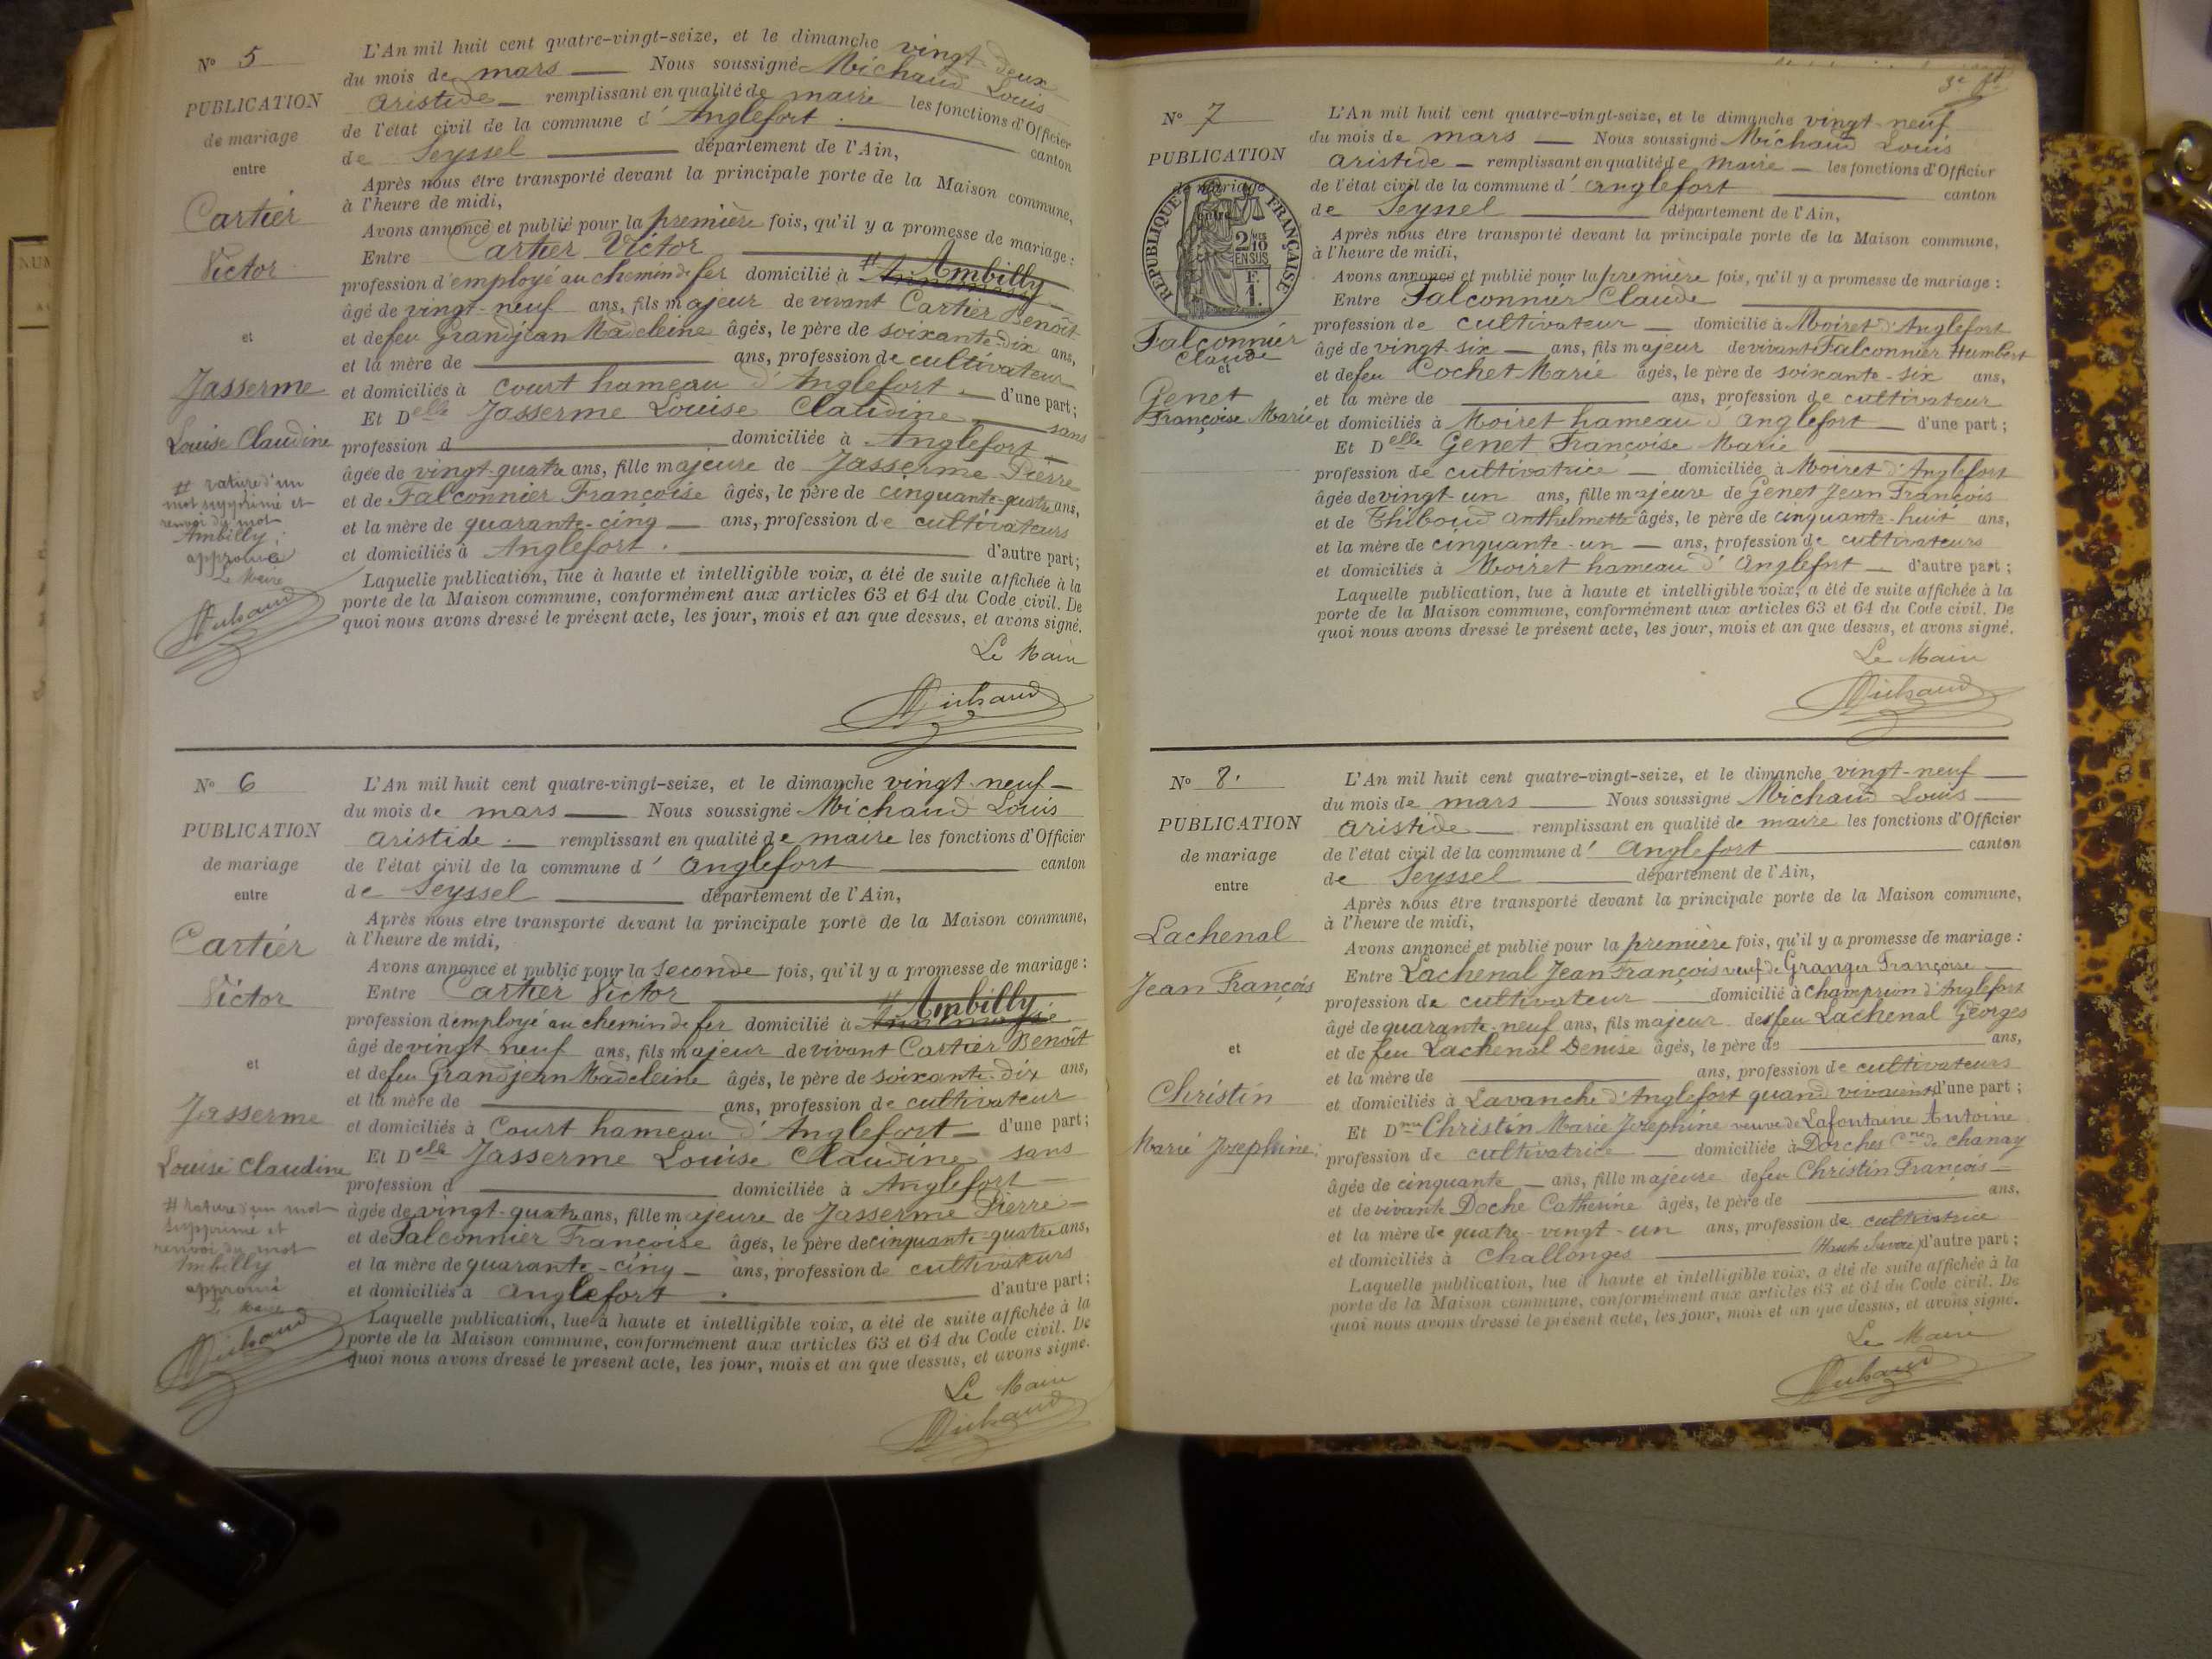 N° 5
PUBLICATION
de mariage
entre
Cartier
Victor
et
Jasserme
Louise Claudine
# rature d'un
mot supprimé et
renvoi du mot
Ambilly;
approuvé
Le Maire
Michaud
L'An mil huit cent quatre-vingt-seize, et le dimanche vingt-deux
du mois de mars — Nous soussigné Michaud Louis
Aristide — remplissant en qualité de maire les fonctions d'Officier
de l'état civil de la commune d' Anglefort. canton
de Seyssel — département de l'Ain,
Après nous être transporté devant la principale porte de la Maison commune,
à l'heure de midi,
Avons annoncé et publié pour la première fois, qu'il y a promesse de mariage :
Entre Cartier Victor
profession d'employé au chemin de fer domicilié à # Ambilly
âgé de vingt-neuf ans, fils majeur de vivant Cartier Benoît
et de feu Grandjean Madeleine âgés, le père de soixante-dix ans,
et la mère de — ans, profession de cultivateur
et domiciliés à Court hameau d'Anglefort — d'une part;
Et Delle Jasserme Louise Claudine — sans
profession d — domiciliée à Anglefort —
âgée de vingt-quatre ans, fille majeure de Jasserme Pierre
et de Falconnier Françoise âgés, le père de cinquante-quatre ans,
et la mère de quarante-cinq — ans, profession de cultivateurs
et domiciliés à Anglefort. — d'autre part;
Laquelle publication, lue à haute et intelligible voix, a été de suite affichée à la
porte de la Maison commune, conformément aux articles 63 et 64 du Code civil. De
quoi nous avons dressé le présent acte, les jour, mois et an que dessus, et avons signé.
Le Maire
Michaud
N° 6
PUBLICATION
de mariage
entre
Cartier
Victor
et
Jasserme
Louise Claudine
# rature d'un mot
supprimé et
renvoi du mot
Ambilly
approuvé
Le Maire
Michaud
L'An mil huit cent quatre-vingt-seize, et le dimanche vingt-neuf —
du mois de mars — Nous soussigné Michaud Louis
Aristide. — remplissant en qualité de maire les fonctions d'Officier
de l'état civil de la commune d' Anglefort — canton
de Seyssel — département de l'Ain,
Après nous être transporté devant la principale porte de la Maison commune,
à l'heure de midi,
Avons annoncé et publié pour la seconde fois, qu'il y a promesse de mariage :
Entre Cartier Victor
profession d'employé au chemin de fer domicilié à # Ambilly.
âgé de vingt-neuf ans, fils majeur de vivant Cartier Benoît
et de feu Grandjean Madeleine âgés, le père de soixante-dix ans,
et la mère de — ans, profession de cultivateur
et domiciliés à Court hameau d'Anglefort — d'une part;
Et Delle Jasserme Louise Claudine sans
profession d — domiciliée à Anglefort —
âgée de vingt-quatre ans, fille majeure de Jasserme Pierre —
et de Falconnier Françoise âgés, le père de cinquante-quatre ans,
et la mère de quarante-cinq — ans, profession de cultivateurs
et domiciliés à Anglefort. d'autre part;
Laquelle publication, lue à haute et intelligible voix, a été de suite affichée à la
porte de la Maison commune, conformément aux articles 63 et 64 du Code civil. De
quoi nous avons dressé le présent acte, les jour, mois et an que dessus, et avons signé.
Le Maire
Michaud
3e ft
N° 7
PUBLICATION
de mariage
entre
RÉPUBLIQUE FRANÇAISE
2/10 EN SUS
F. 1.
Falconnier
Claude
et
Genet
Françoise Marie
L'An mil huit cent quatre-vingt-seize, et le dimanche vingt-neuf
du mois de mars — Nous soussigné Michaud Louis
Aristide — remplissant en qualité de maire — les fonctions d'Officier
de l'état civil de la commune d' Anglefort — canton
de Seyssel — département de l'Ain,
Après nous être transporté devant la principale porte de la Maison commune,
à l'heure de midi,
Avons annoncé et publié pour la première fois, qu'il y a promesse de mariage :
Entre Falconnier Claude
profession de cultivateur — domicilié à Moiret d'Anglefort
âgé de vingt-six — ans, fils majeur de vivant Falconnier Humbert
et de feu Cochet Marie âgés, le père de soixante-six ans,
et la mère de — ans, profession de cultivateur
et domiciliés à Moiret hameau d'Anglefort — d'une part;
Et Delle Genet Françoise Marie
profession de cultivatrice — domiciliée à Moiret d'Anglefort
âgée de vingt-un ans, fille majeure de Genet Jean François
et de Thiboud Anthelmette âgés, le père de cinquante-huit ans,
et la mère de cinquante-un — ans, profession de cultivateurs
et domiciliés à Moiret hameau d'Anglefort — d'autre part;
Laquelle publication, lue à haute et intelligible voix, a été de suite affichée à la
porte de la Maison commune, conformément aux articles 63 et 64 du Code civil. De
quoi nous avons dressé le présent acte, les jour, mois et an que dessus, et avons signé.
Le Maire
Michaud
N° 8.
PUBLICATION
de mariage
entre
Lachenal
Jean François
et
Christin
Marie Josephine.
L'An mil huit cent quatre-vingt-seize, et le dimanche vingt-neuf —
du mois de mars — Nous soussigné Michaud Louis —
Aristide — remplissant en qualité de maire les fonctions d'Officier
de l'état civil de la commune d' Anglefort — canton
de Seyssel — département de l'Ain,
Après nous être transporté devant la principale porte de la Maison commune,
à l'heure de midi,
Avons annoncé et publié pour la première fois, qu'il y a promesse de mariage :
Entre Lachenal Jean François veuf de Granger Françoise —
profession de cultivateur — domicilié à Champrion d'Anglefort
âgé de quarante-neuf ans, fils majeur de feu Lachenal Georges
et de feu Lachenal Denise âgés, le père de — ans,
et la mère de — ans, profession de cultivateurs
et domiciliés à Lavanche d'Anglefort quand vivaient d'une part;
Et Dme Christin Marie Josephine veuve de Lafontaine Antoine
profession de cultivatrice — domiciliée à Dorches Cne de Chanay
âgée de cinquante — ans, fille majeure de feu Christin François —
et de vivante Doche Catherine âgés, le père de — ans,
et la mère de quatre-vingt-un ans, profession de cultivatrice
et domiciliés à Challonges — (Haute Savoie) d'autre part;
Laquelle publication, lue à haute et intelligible voix, a été de suite affichée à la
porte de la Maison commune, conformément aux articles 63 et 64 du Code civil. De
quoi nous avons dressé le présent acte, les jour, mois et an que dessus, et avons signé.
Le Maire
Michaud